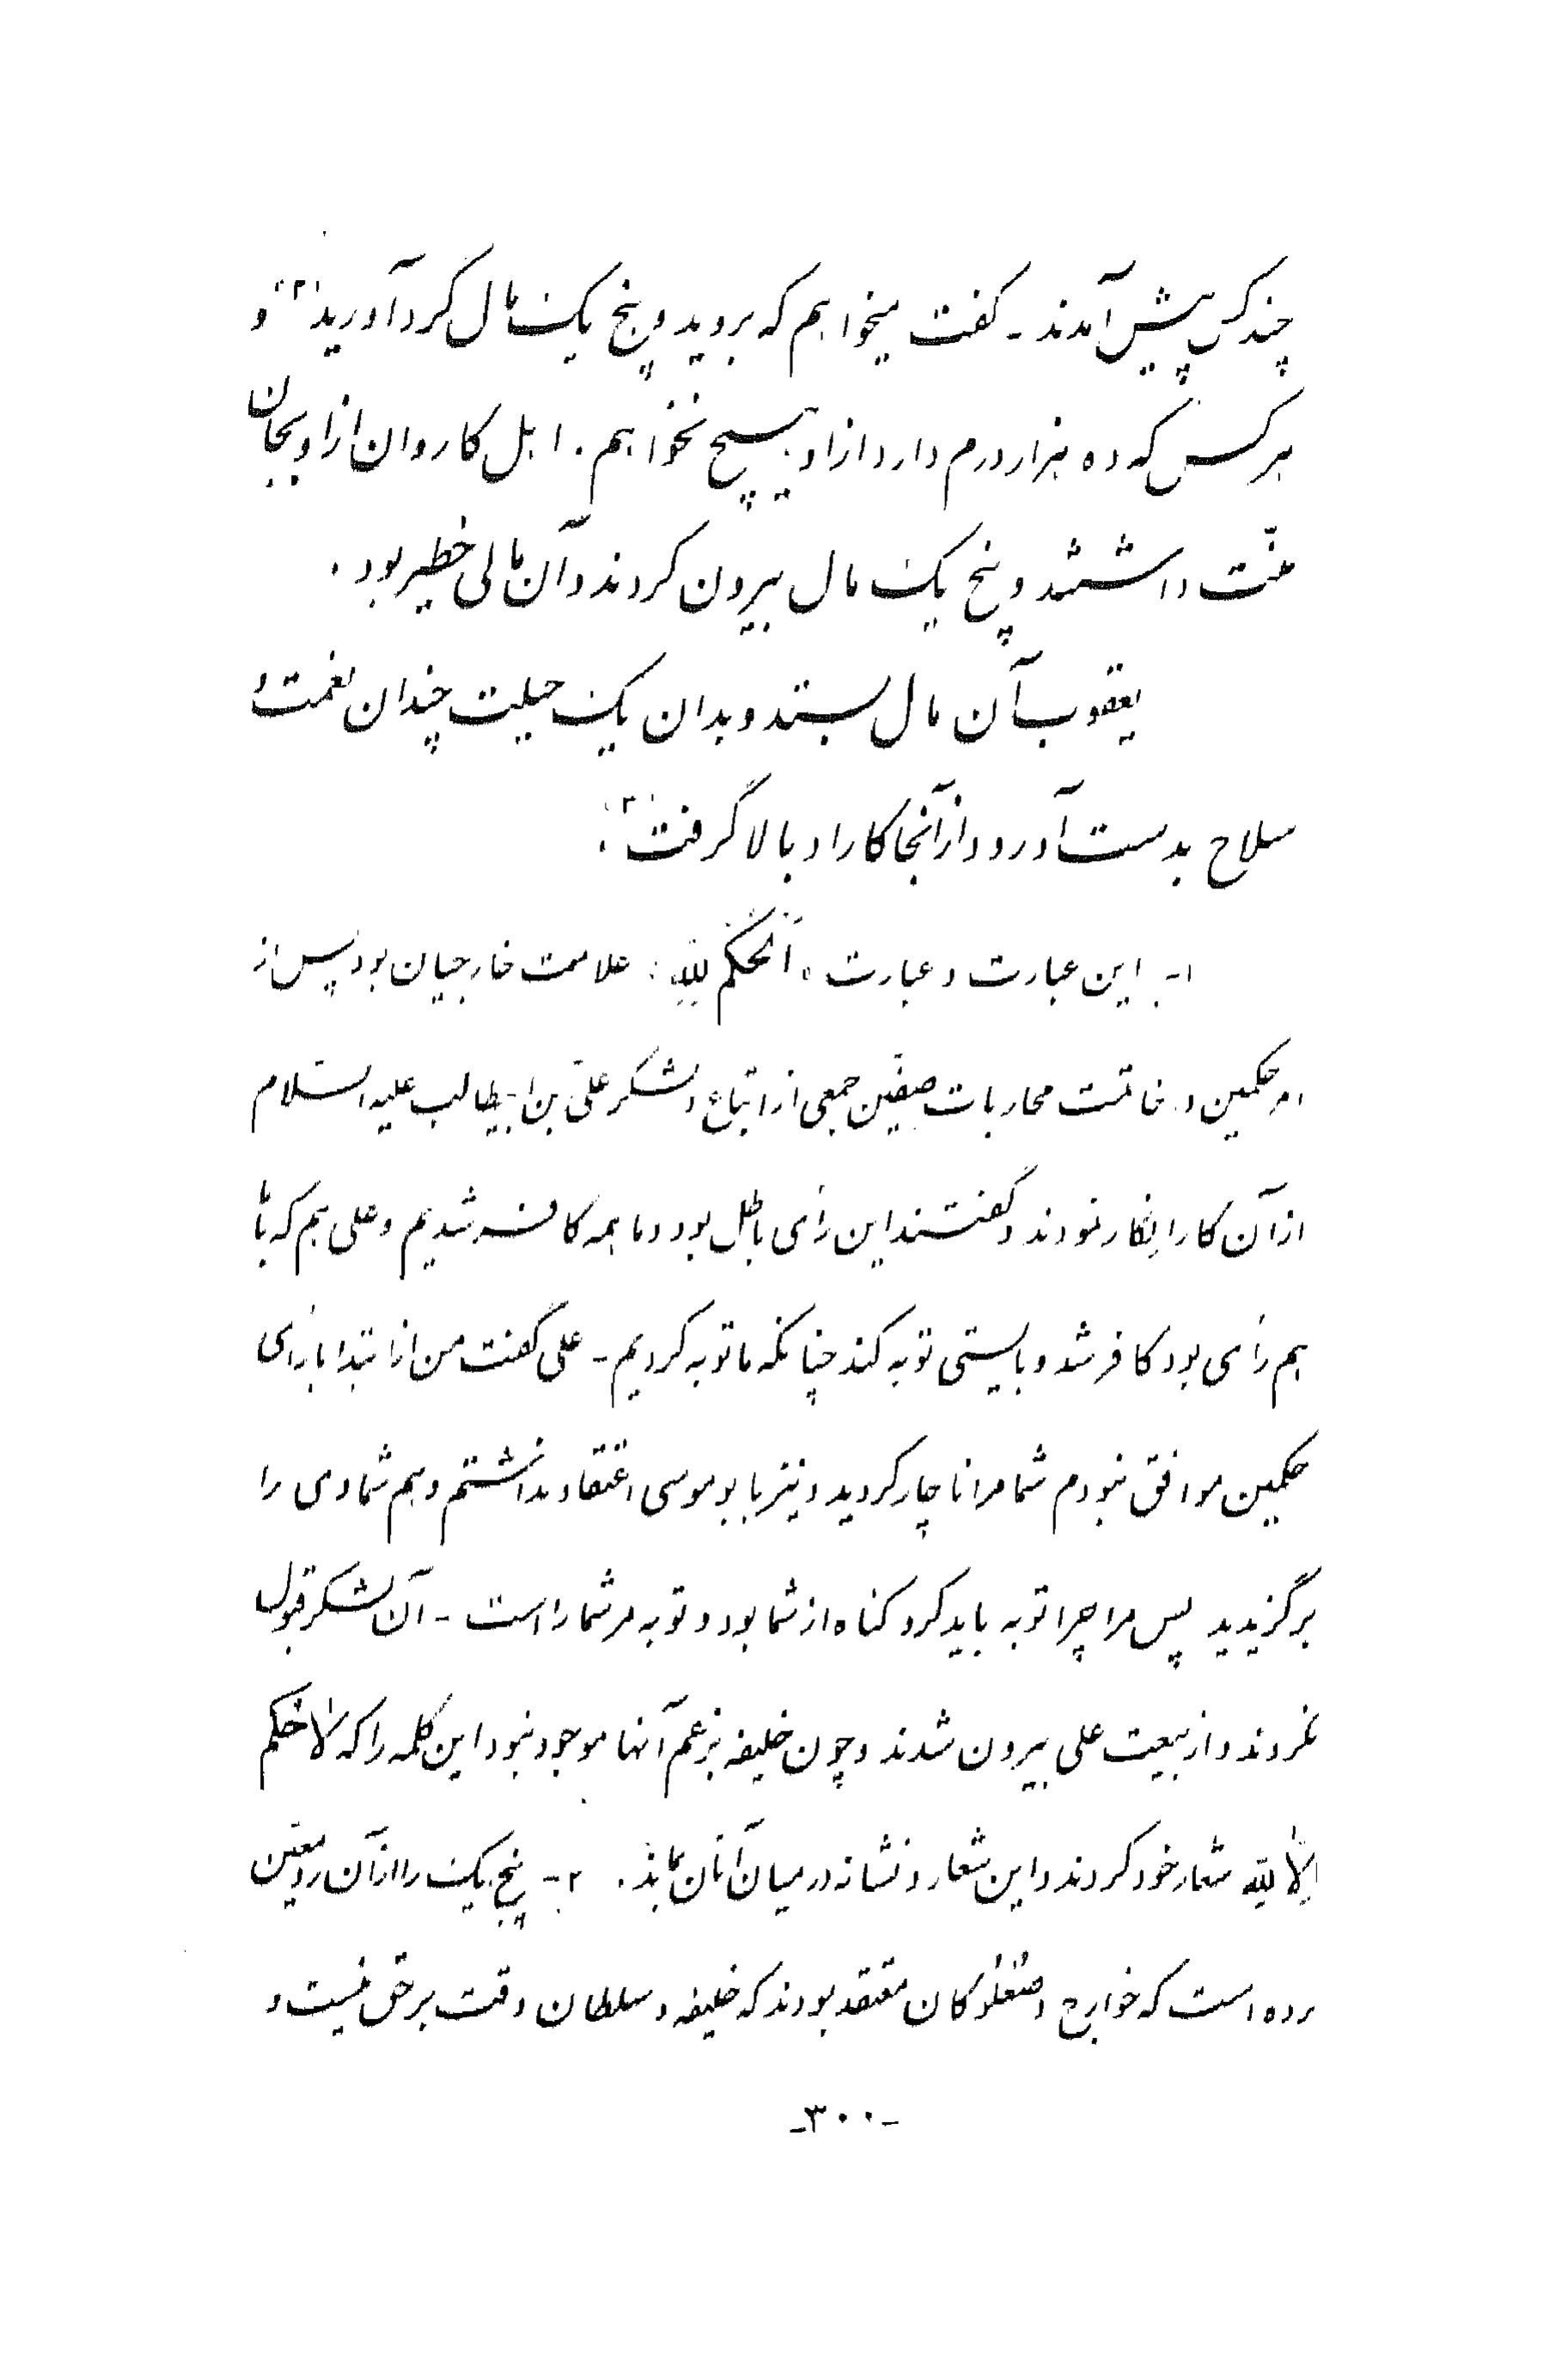 چند کس پیش آمدند - گفت میخواهم که بروید و پنج یک مال گرد آورید «۲» و
هر کس که ده هزار درم دارد از او هیچ نخواهم . اهل کاروان از او بجان
منّت داشتند و پنج یک مال بیرون کردند و آن مالی خطیر بود .
یعقوب آن مال بستد و بدان یک حیلت چندان نعمت و
سلاح بدست آورد و از آنجا کار او بالا گرفت «۳» .
۱- این عبارت و عبارت «اَلْحُکْمُ لِلّٰهِ» علامت خارجیان بود پس از
امر حکمین در خاتمت محاربات صِفّین جمعی از اتباع و لشکر علیّ بن ابیطالب علیه السّلام
از آن کار انکار نمودند و گفتند این رأی باطل بود و ما همه کافر شدیم و علی هم که با ما
هم رأی بود کافر شد و بایستی توبه کند چنانکه ما توبه کردیم - علی گفت من از ابتدا با رأی
حکمین موافق نبودم شما مرا ناچار کردید و نیز با بوموسی اعتقاد نداشتم و هم شما وی را
برگزیدید پس مرا چرا توبه باید کرد گناه از شما بود و توبه مر شما راست - آن لشکر قبول
نکردند و از بیعت علی بیرون شدند و چون خلیفه بزعم آنها موجود نبود این کلمه را که لاٰ حُکْمَ
اِلاّٰ لِلّٰهِ شعار خود کردند و این شعار و نشانه در میان آنان بماند . ۲- پنج یک را از آن رو معیّن
کرده است که خوارج و صُعْلوکان معتقد بودند که خلیفه و سلطان وقت بر حق نیست و
-۳۰۰-